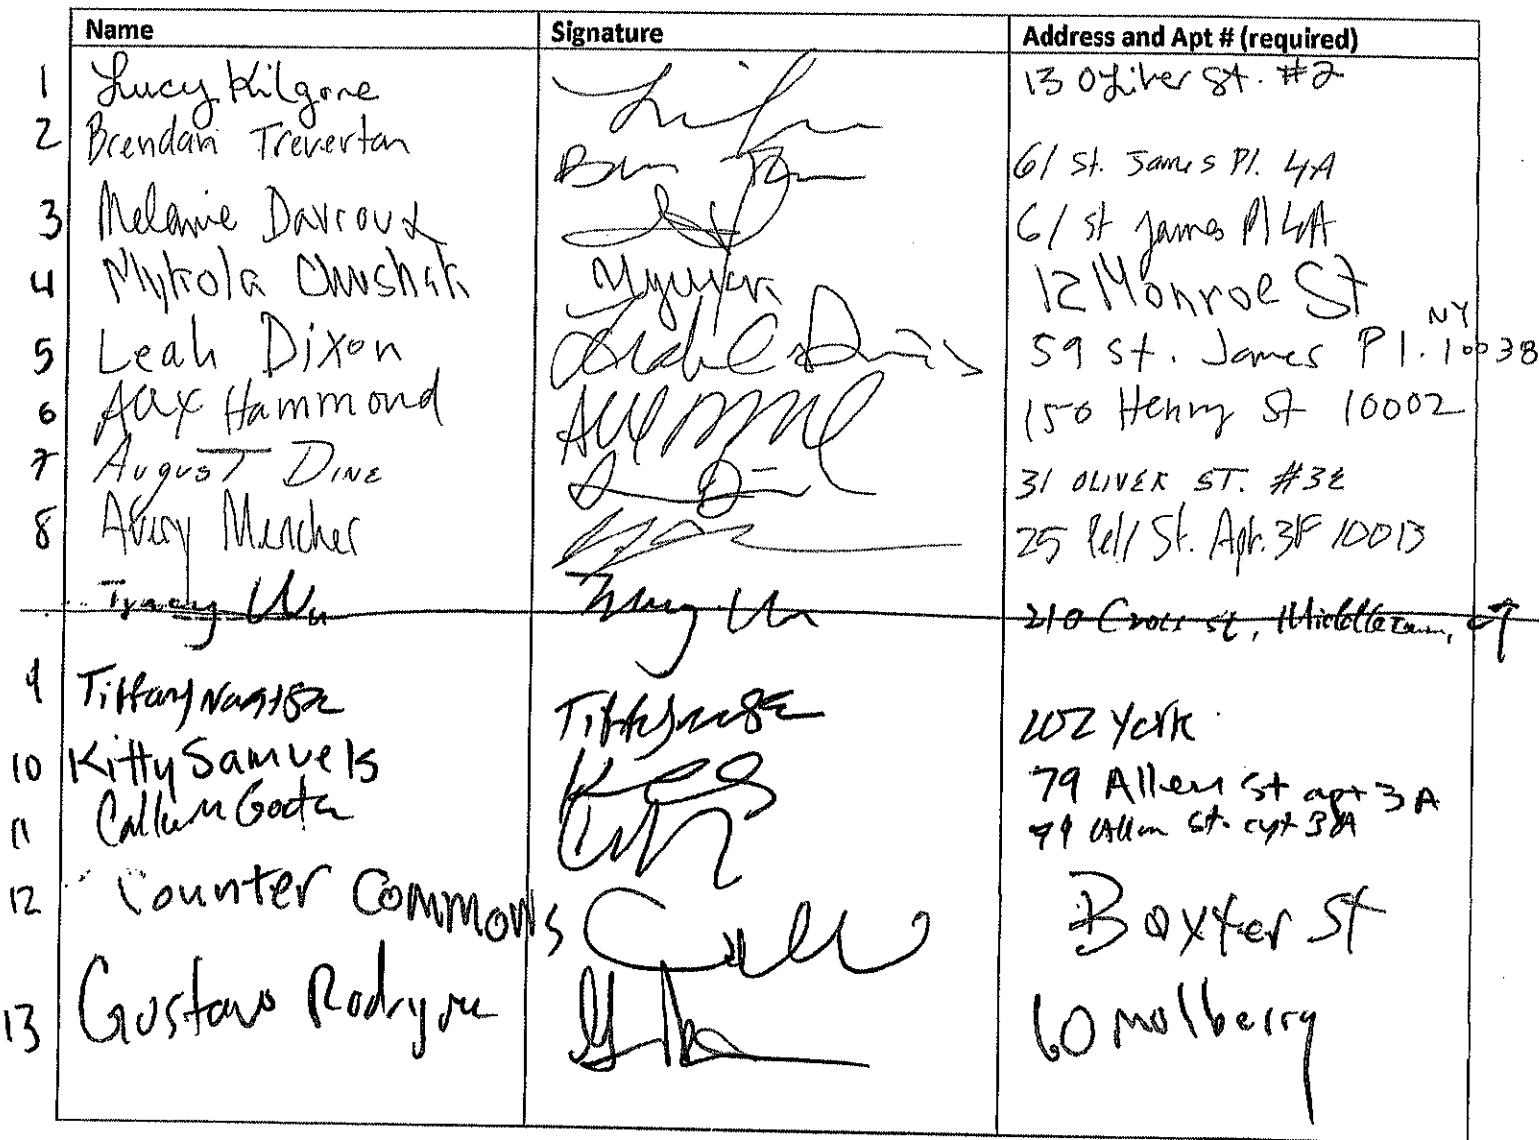 Name Signature Address and Apt # (required)
1 Lucy Kilgore 13 Oliver St. #2
2 Brendan Treverton 61 St. James Pl. 4A
3 Melanie Davroux 61 St James Pl 4A
4 Mykola 12 Monroe St
5 Leah Dixon 59 St. James Pl. NY 10038
6 Alex Hammond 150 Henry St 10002
7 August Dine 31 OLIVER ST. #3E
8 Avery Mencher 25 Pell St. Apt. 3F 10013
Tracy Wu Tracy Wu 210 Cross st, Middletown, CT
9 Tiffany 202 York
10 Kitty Samuels 79 Allen St apt 3A
11 Callum 79 Allen St. apt 3A
12 Counter Commons Baxter St
13 Gustavo 60 Mulberry